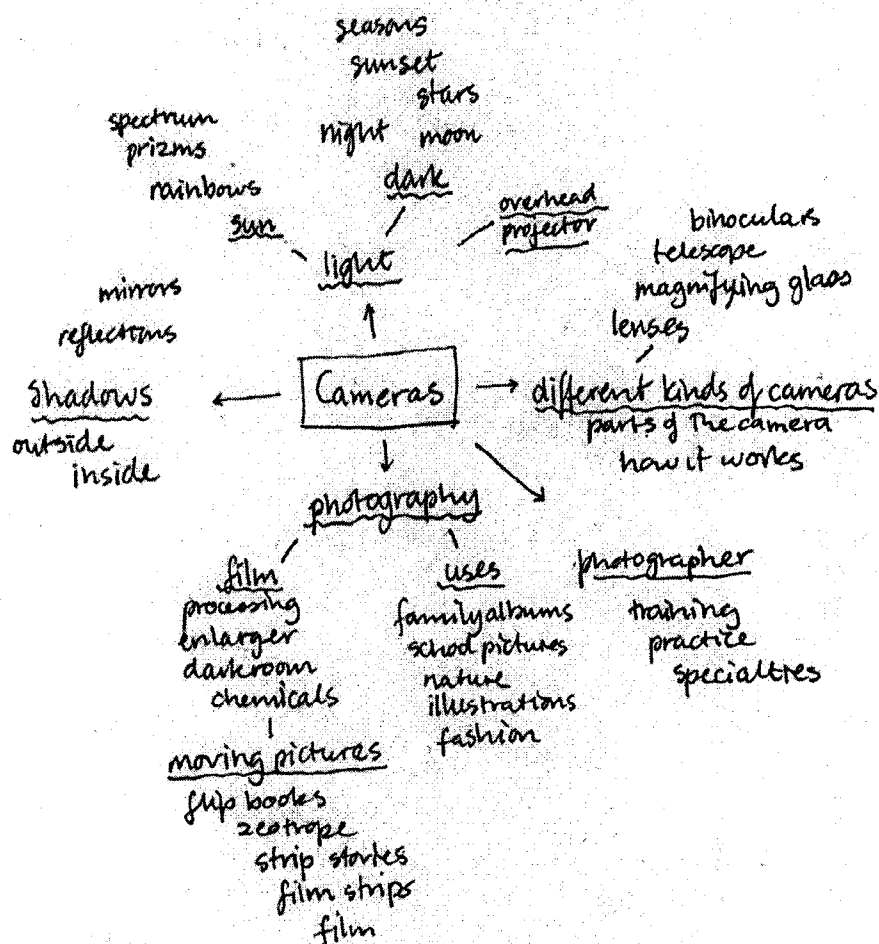 seasons
sunset
stars
night moon
dark
spectrum
prizms
rainbows
sun
overhead
projector
light
binoculars
telescope
magnifying glass
lenses
mirrors
reflections
shadows
outside
inside
Cameras
different kinds of cameras
parts of the camera
how it works
photography
film
processing
enlarger
darkroom
chemicals
moving pictures
flip books
zeotrope
strip stories
film strips
film
uses
family albums
school pictures
nature
illustrations
fashion
photographer
training
practice
specialties